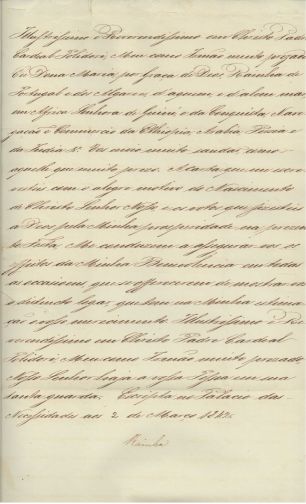 Illustrissimo e Reverendissimo em Christo Padre
Cardeal Meu como Irmão muito prezado
Eu Dona Maria, por Graça de Deos, Rainha de
Portugal e dos Algarves, d'aquem e d'alem mar
em Africa Senhora de Guiné e da Conquista, Nave
gação e Commercio da Ethiopia, Arabia, Persia e
da India &. Vos envio muito saudar como
aquelle que muito prezo. A carta que me escre
vestes com o alegre motivo do Nascimento
de Christo Senhor Nosso, e os votos que
a Deos pela Minha prosperidade na presente
Me conduzem a segurar vos os
effeitos da Minha Benevolencia em todas
as occasiões que se offerecerem de mostrar vos
o distincto logar, que tem na Minha estima
ção o vosso merecimento. Illustrissimo e Re
verendissimo em Christo Padre Cardeal
Meu como Irmão muito prezado,
Nosso Senhor haja a vossa Pessoa em sua
santa guarda. Escripta no Palacio das
Necessidades aos 2 de Março
Rainha